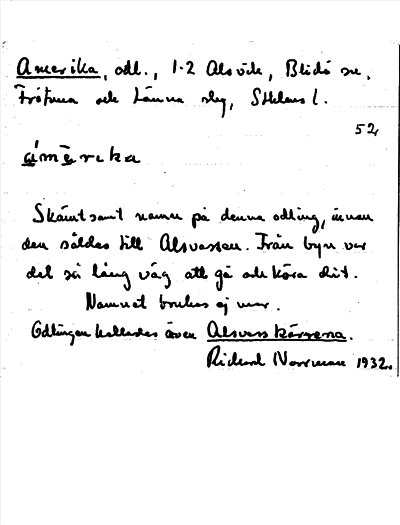 Amerika, odl., 1-2 Alsvik, Blidö sn,
Frötuna och Länna slg, Sthlms l.
52
ámèrika
Skämtsamt namn på denna odling, innan
den såldes till Alsvassen. Från byn var
det så lång väg att gå och köra dit.
Namnet brukas ej mer.
Odlingen kallades även Alsvasskärrena.
Rickard Norrman 1932.